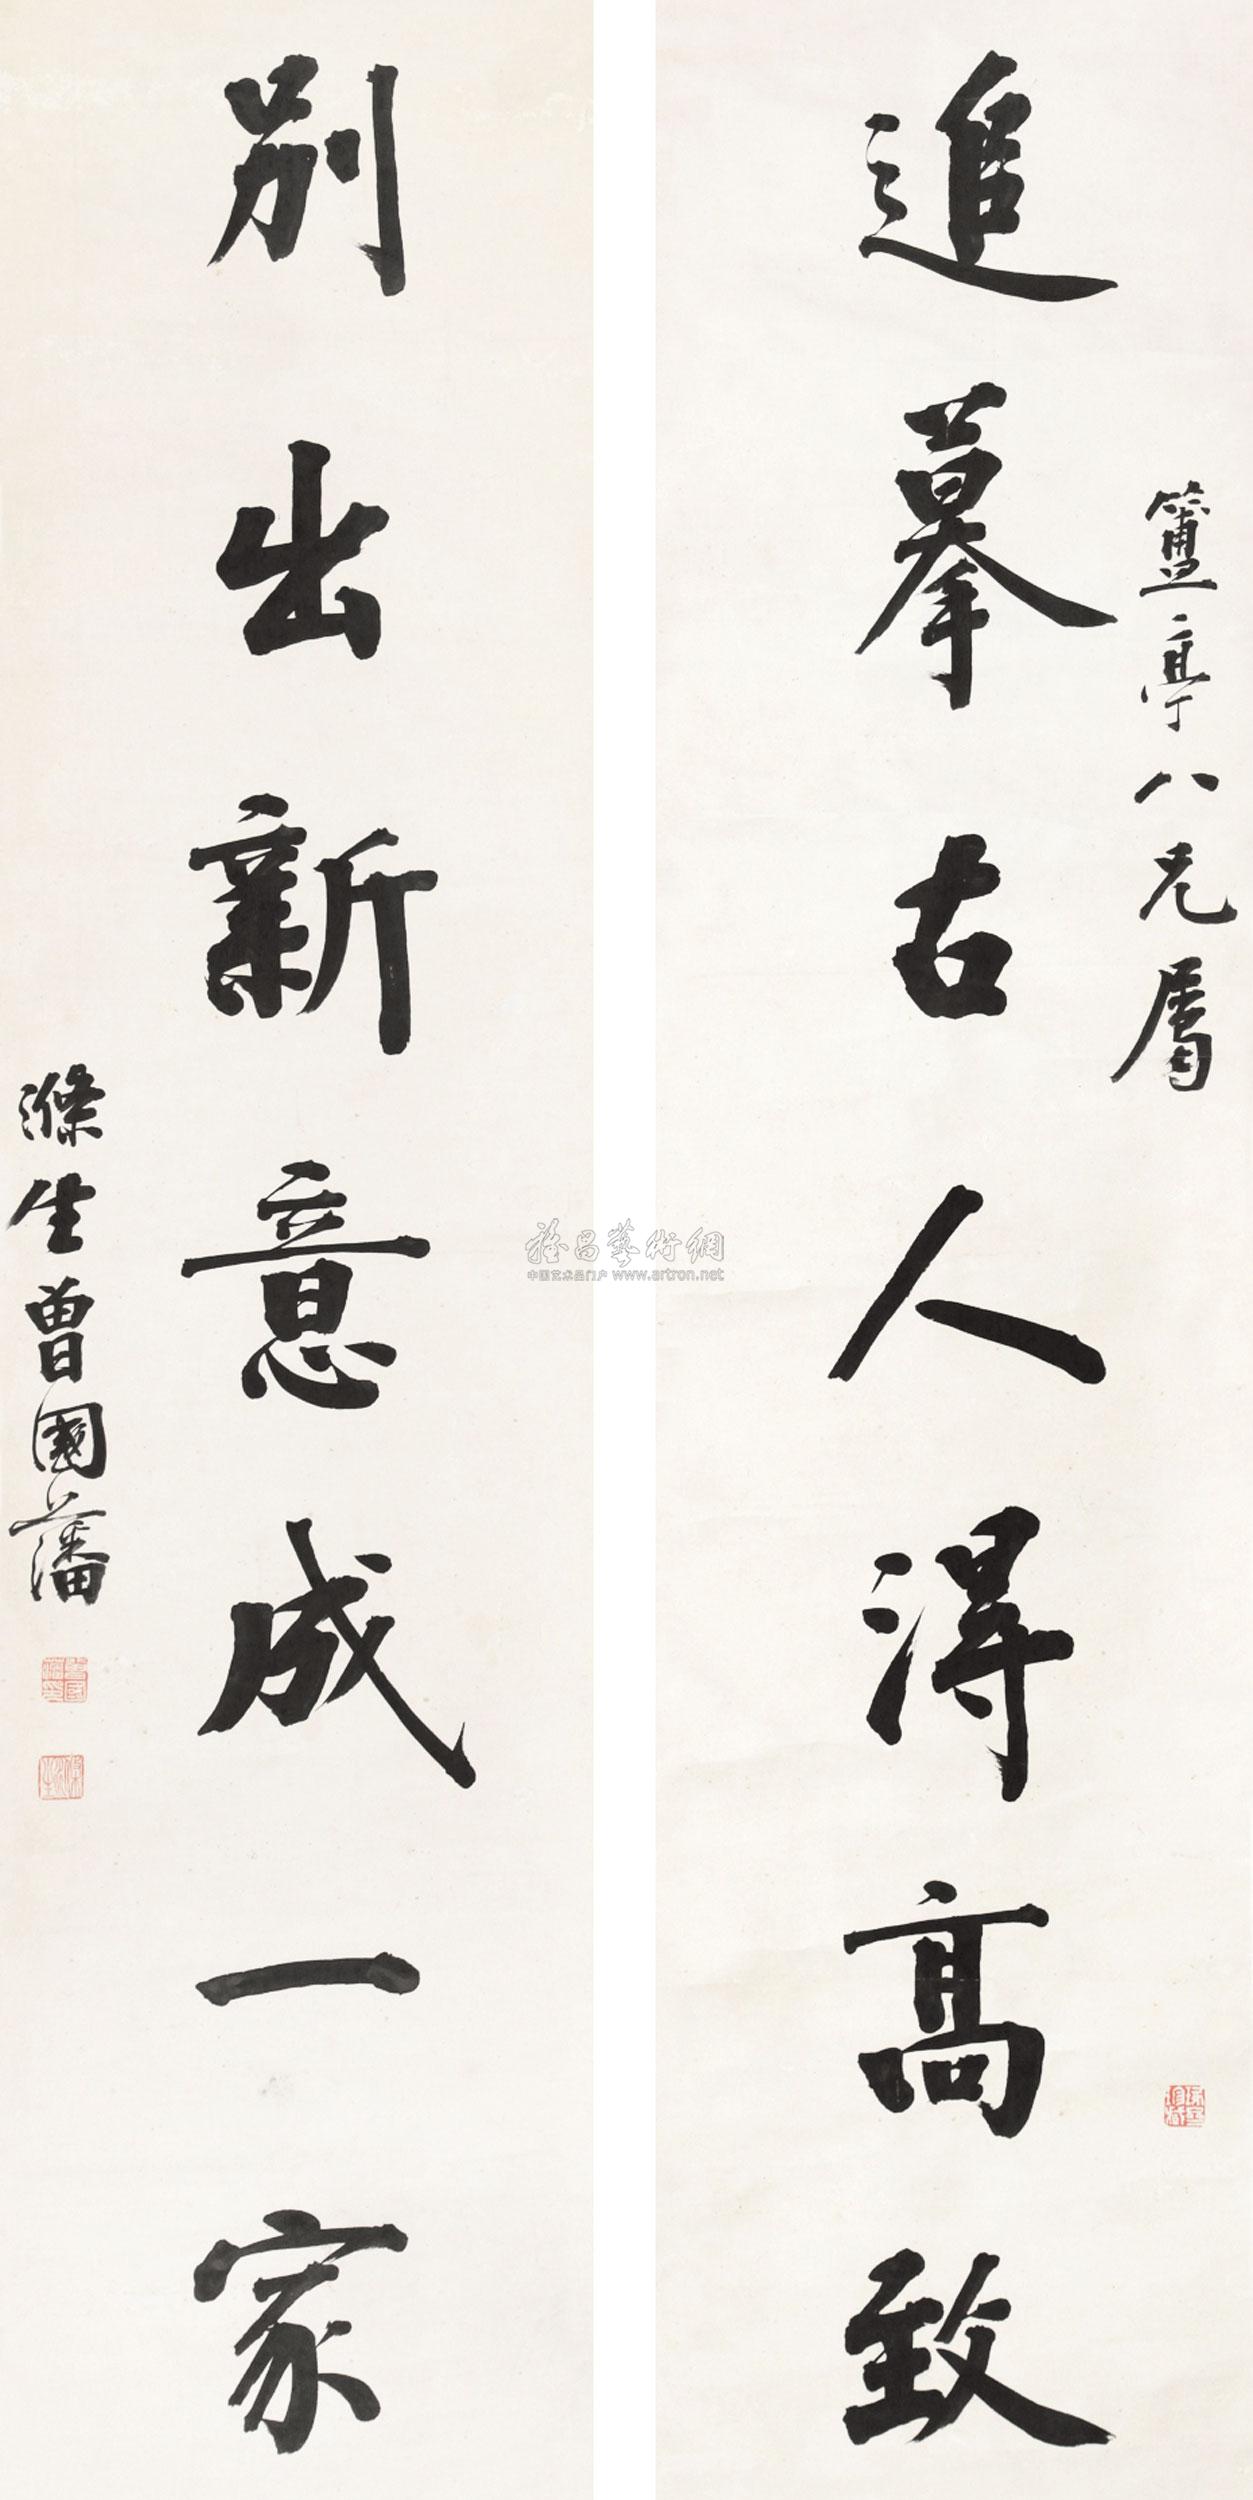 追摹古人得高致
簠亭八兄屬
別出新意成一家
滌生曾國藩
雅昌藝術網
中国艺术品门户 www.artron.net